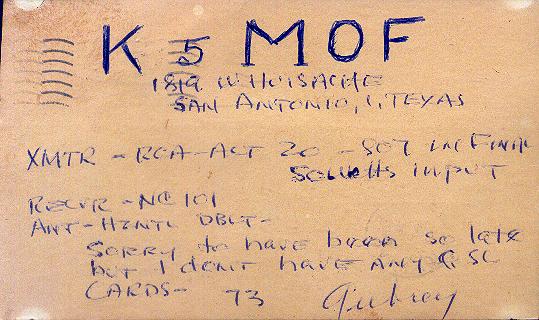 K 5 MOF
1819 W HUISACHE
SAN ANTONIO, 1, TEXAS
XMTR - RCA-ACT 20 - 807 IN FINAL
50 WATTS INPUT
RECVR - NC 101
ANT - HZNTL DBLT -
SORRY to have been so late
but I don't have ANY QSL
CARDS - 73